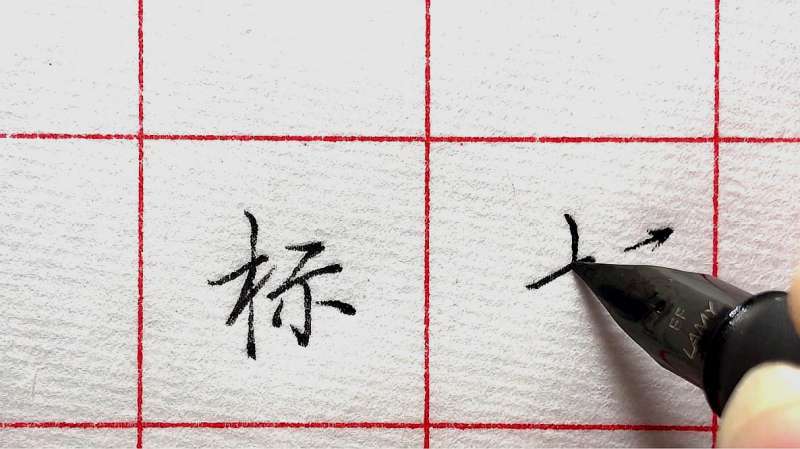 标
EF
LAMY